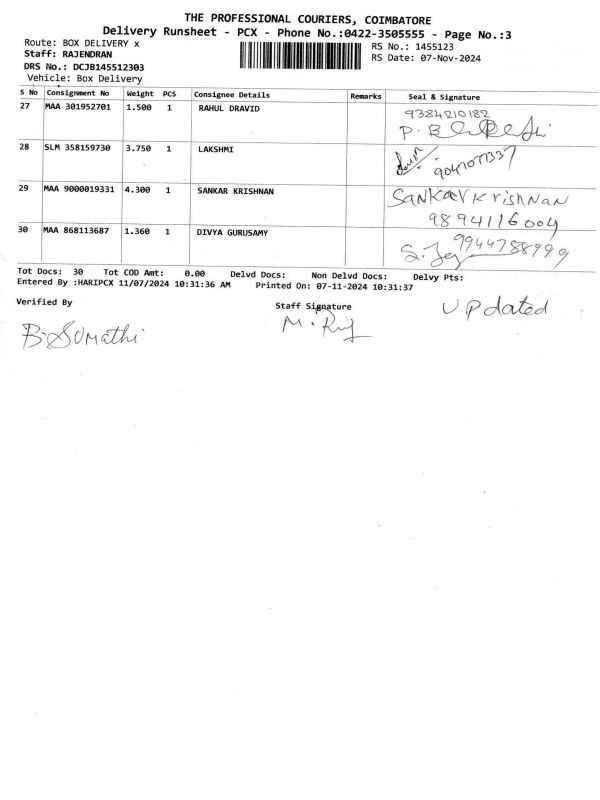 THE PROFESSIONAL COURIERS, COIMBATORE
Delivery Runsheet - PCX - Phone No.:0422-3505555 - Page No.:3
Route: BOX DELIVERY x
RS No.: 1455123
Staff: RAJENDRAN
RS Date: 07-Nov-2024
DRS No.: DCJB145512303
Vehicle: Box Delivery
S No Consignment No Weight PCS Consignee Details Remarks Seal & Signature
27 MAA 301952701 1.500 1 RAHUL DRAVID 9384210182
P.
28 SLM 358159730 3.750 1 LAKSHMI 9047077337
29 MAA 9000019331 4.300 1 SANKAR KRISHNAN Sankar Krishnan
9894116004
30 MAA 868113687 1.360 1 DIVYA GURUSAMY 9944788999
Tot Docs: 30 Tot COD Amt: 0.00 Delvd Docs: Non Delvd Docs: Delvy Pts:
Entered By :HARIPCX 11/07/2024 10:31:36 AM Printed On: 07-11-2024 10:31:37
Verified By Staff Signature Updated
B. Sumathi M.